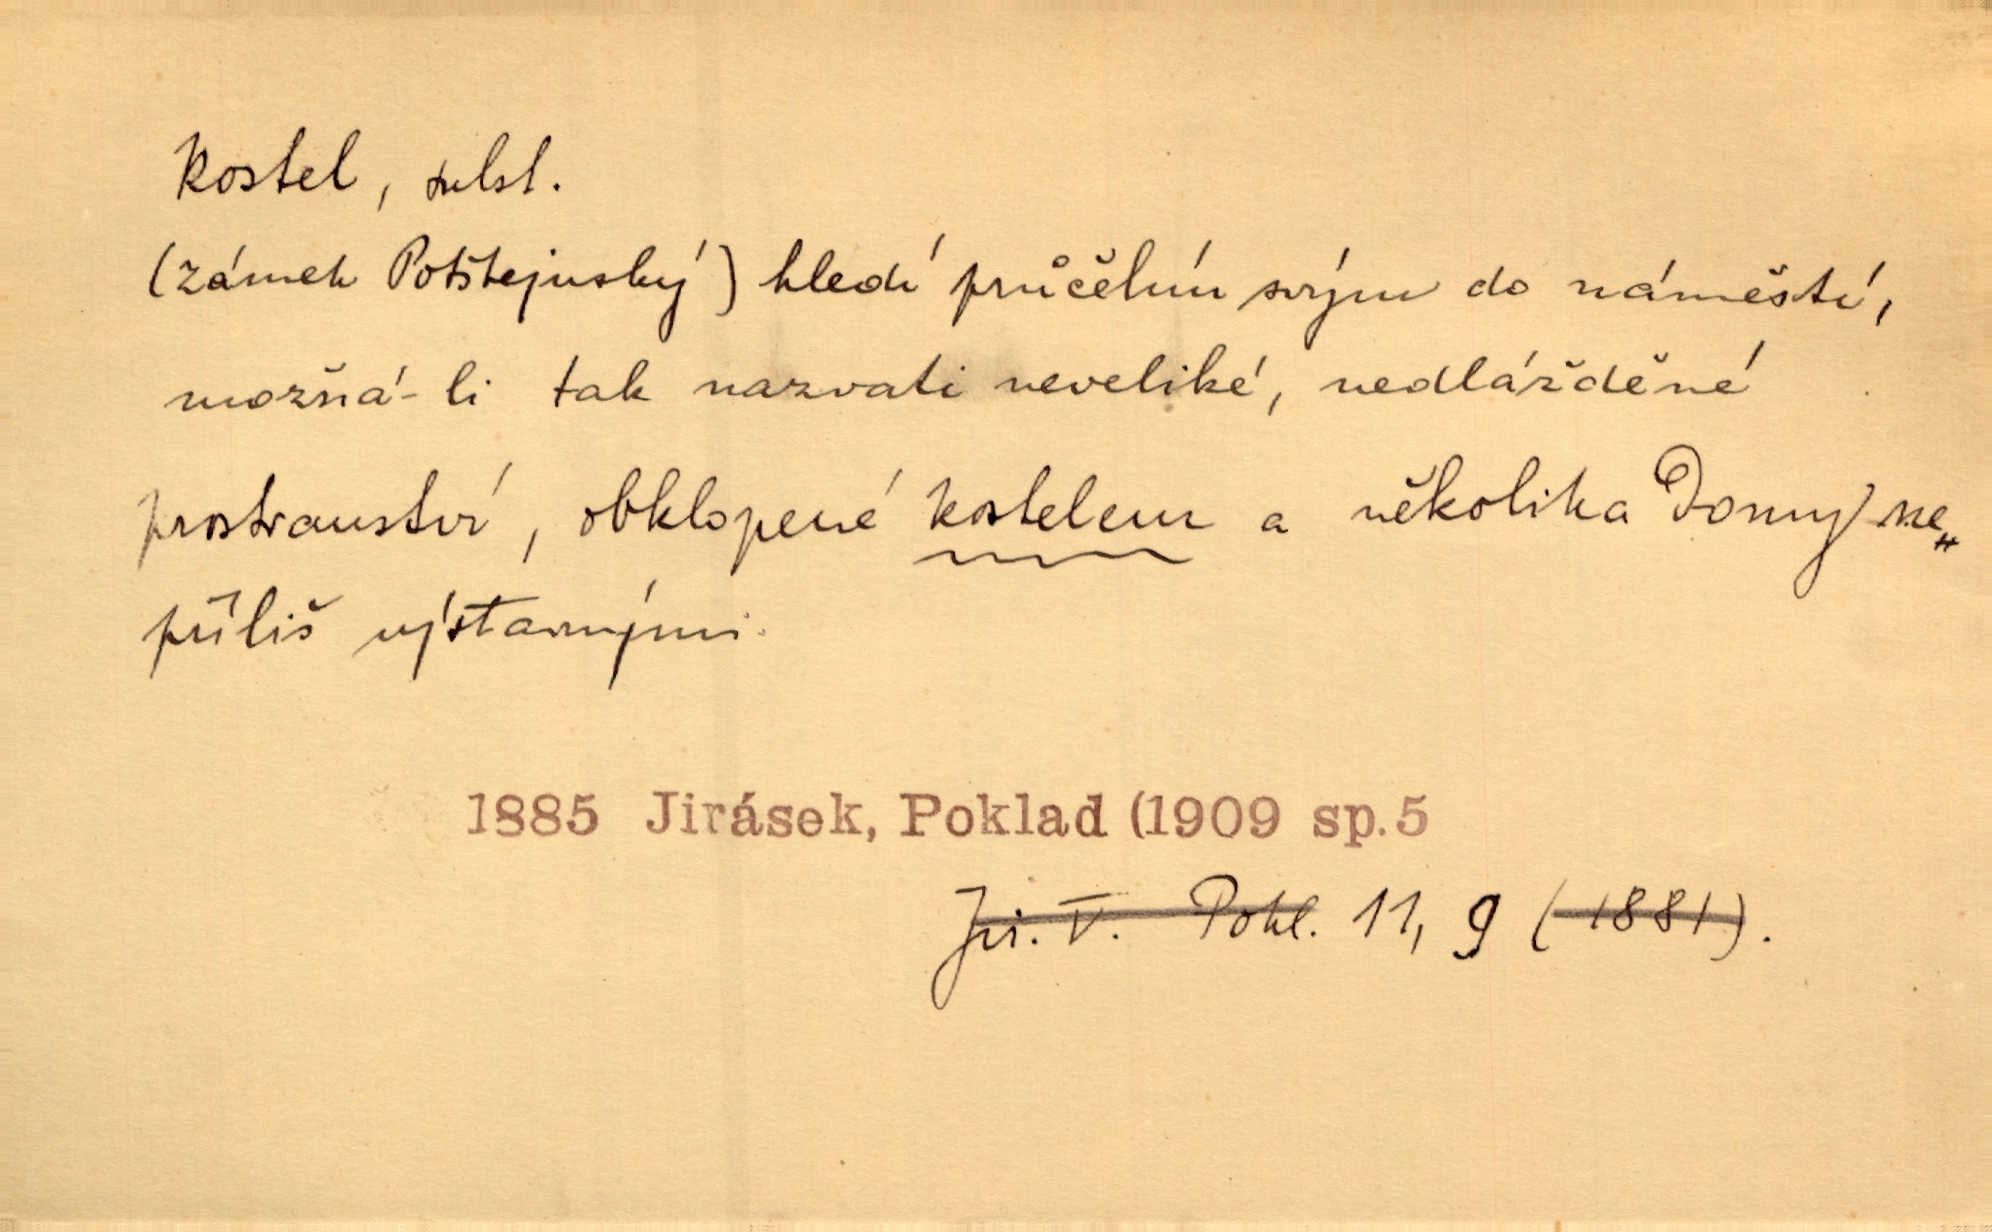 kostel, subst.
(zámek Potštejnský) hledí průčelím svým do náměstí,
možná-li tak nazvati neveliké, nedlážděné
prostranství, obklopené kostelem a několika domy ne„
příliš výstavnými.
1885 Jirásek, Poklad (1909 sp.5
Jir. V. Pokl. 11, 9 (1881).